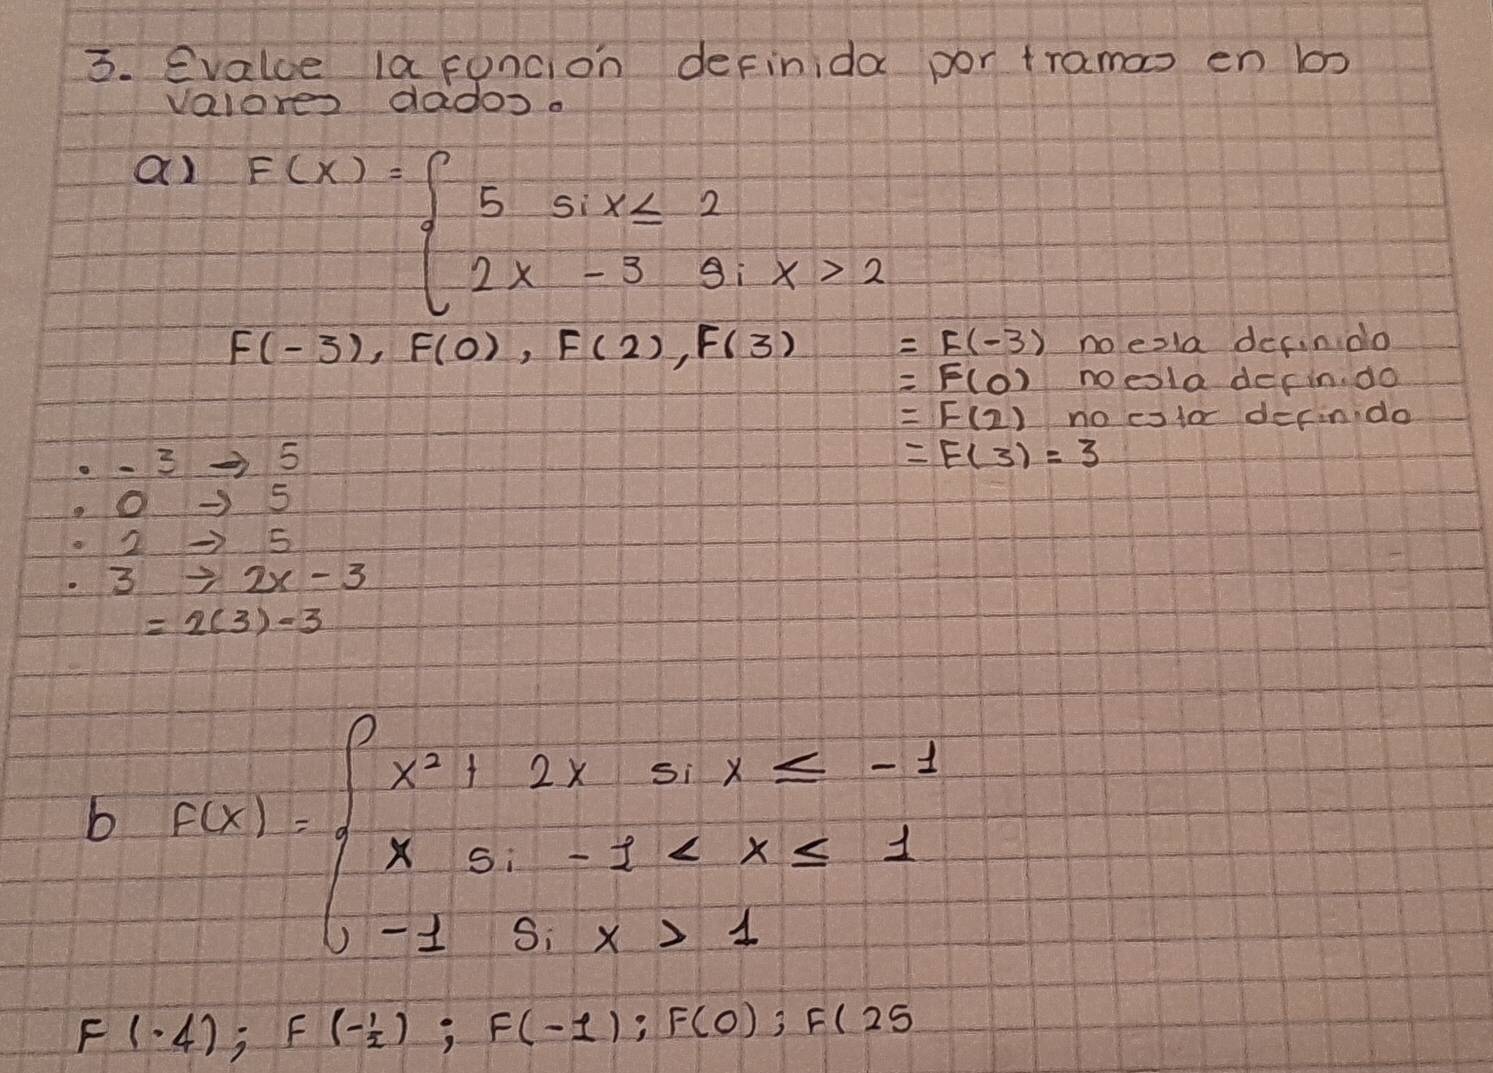 3. Evalue la función definida por tramos en los
valores dados.
a) F(x) = { 5 si x ≤ 2
2x - 3 si x > 2
F(-3), F(0), F(2), F(3)
= F(-3) no esta definido
= F(0) no esta definido
= F(2) no esta definido
= F(3) = 3
. - 3 → 5
. 0 → 5
. 2 → 5
. 3 → 2x - 3
= 2(3) - 3
b F(x) = { x² + 2x si x ≤ -1
x si -1 < x ≤ 1
-1 si x > 1
F(-4); F(-1/2); F(-1); F(0); F(25